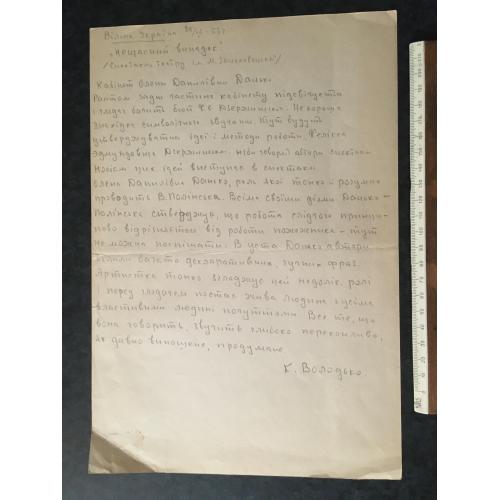 Вільна Україна
"Нещасний випадок"
/Спектакль театру ім. М. Заньковецької/
Кабінет Олени Данилівни Данько
Раптом задня частина кабінету підсвічується
і глядач бачить бюст Ф. Е. Дзержинського. Це хороша
знахідка символічного звучання. Тут будуть
утверджуватись ідеї і методи роботи Фелікса
Едмундовича Дзержинського ніби говорять автори спектаклю
Носієм цих ідей виступає в спектаклі
Олена Данилівна Данько, роль якої тонко і розумно
проводить В. Полінська. Всіма своїми діями Данько-
Полінська стверджує, що робота слідчого принци-
пово відрізняється від роботи пожежника - тут
не можна поспішати. В уста Данько автори
вклали багато декларативних, гучних фраз.
Артистка тонко згладжує цей недолік ролі
і перед глядачем постає жива людина з усіма
властивими людині почуттями. Все те, що
вона говорить, звучить глибоко переконливо,
як давно виношене, продумане
К. Володько.